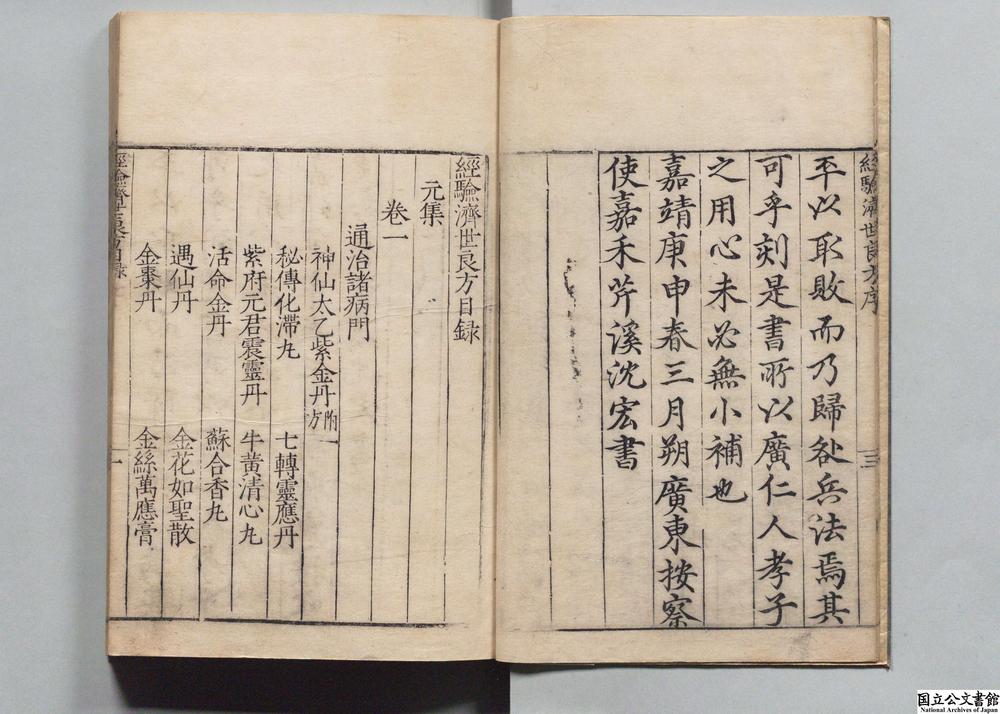 經驗濟世良方序
三
平以取敗而乃歸咎兵法焉其
可乎刻是書所以廣仁人孝子
之用心未必無小補也
嘉靖庚申春三月朔廣東按察
使嘉禾芹溪沈宏書
經驗濟世良方目録
元集
卷一
通治諸病門
神仙太乙紫金丹附一方
秘傳化滯丸 七轉靈應丹
紫府元君震靈丹 牛黄清心丸
活命金丹 蘇合香丸
遇仙丹 金花如聖散
金棗丹 金絲萬應膏
經驗濟世良方目録
一
国立公文書館
National Archives of Japan